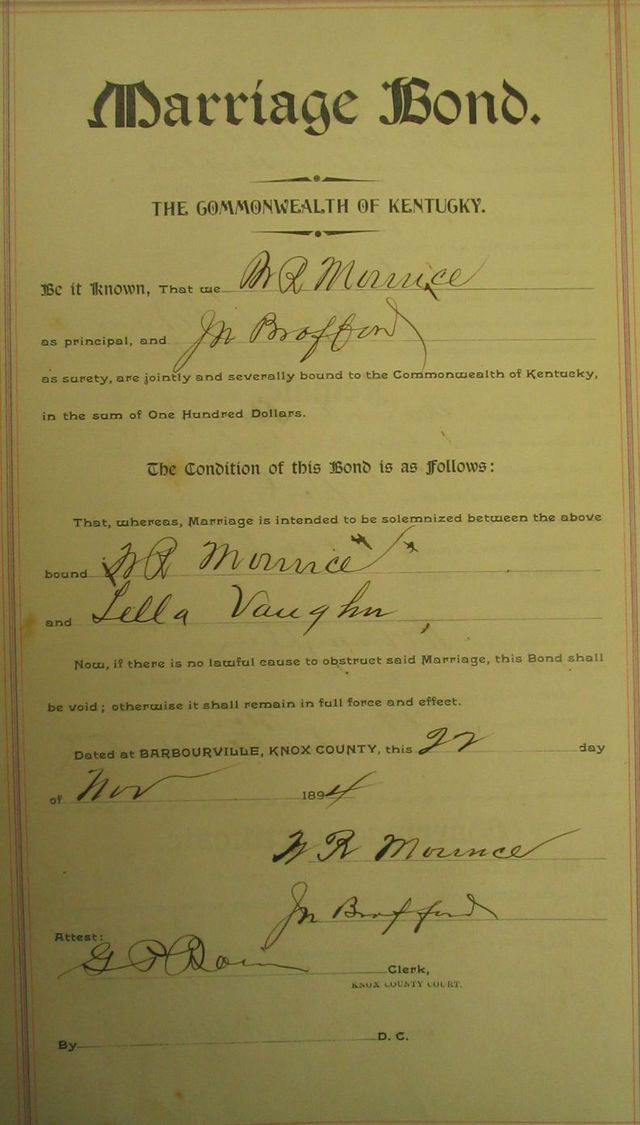 Marriage Bond.
THE COMMONWEALTH OF KENTUCKY.
Be it Known, That we W R Mournice
as principal, and Jn Brafford
as surety, are jointly and severally bound to the Commonwealth of Kentucky,
in the sum of One Hundred Dollars.
The Condition of this Bond is as Follows:
That, whereas, Marriage is intended to be solemnized between the above
bound W R Mournice
and Lella Vaughn,
Now, if there is no lawful cause to obstruct said Marriage, this Bond shall
be void; otherwise it shall remain in full force and effect.
Dated at BARBOURVILLE, KNOX COUNTY, this 22 day
of Nov 1894
W R
Jn Brafford
Attest:
G P Clerk,
KNOX COUNTY COURT.
By D. C.